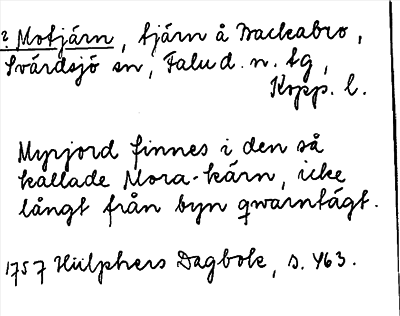 ? Motjärn, tjärn å Backabro,
Svärdsjö sn, Falu d. n. tg,
Kopp. l.
Myrjord finnes i den så
kallade Mora-kärn, icke
långt från byn qwarntägt.
1757 Hülphers Dagbok, s. 463.